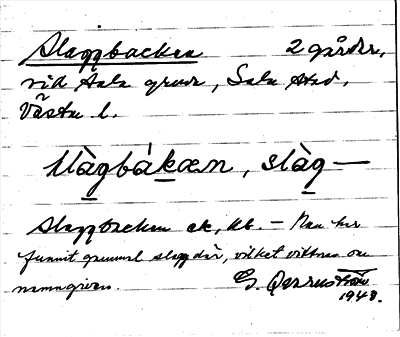 Slaggbacken 2 gårdar,
vid Sala gruva, Sala stad,
Västm l.
slàgbákæn, slàg—
Slaggbacken ek, kb. – Man har
funnit gammal slagg där, vilket vittnar om
namngiven.
G.
1948.